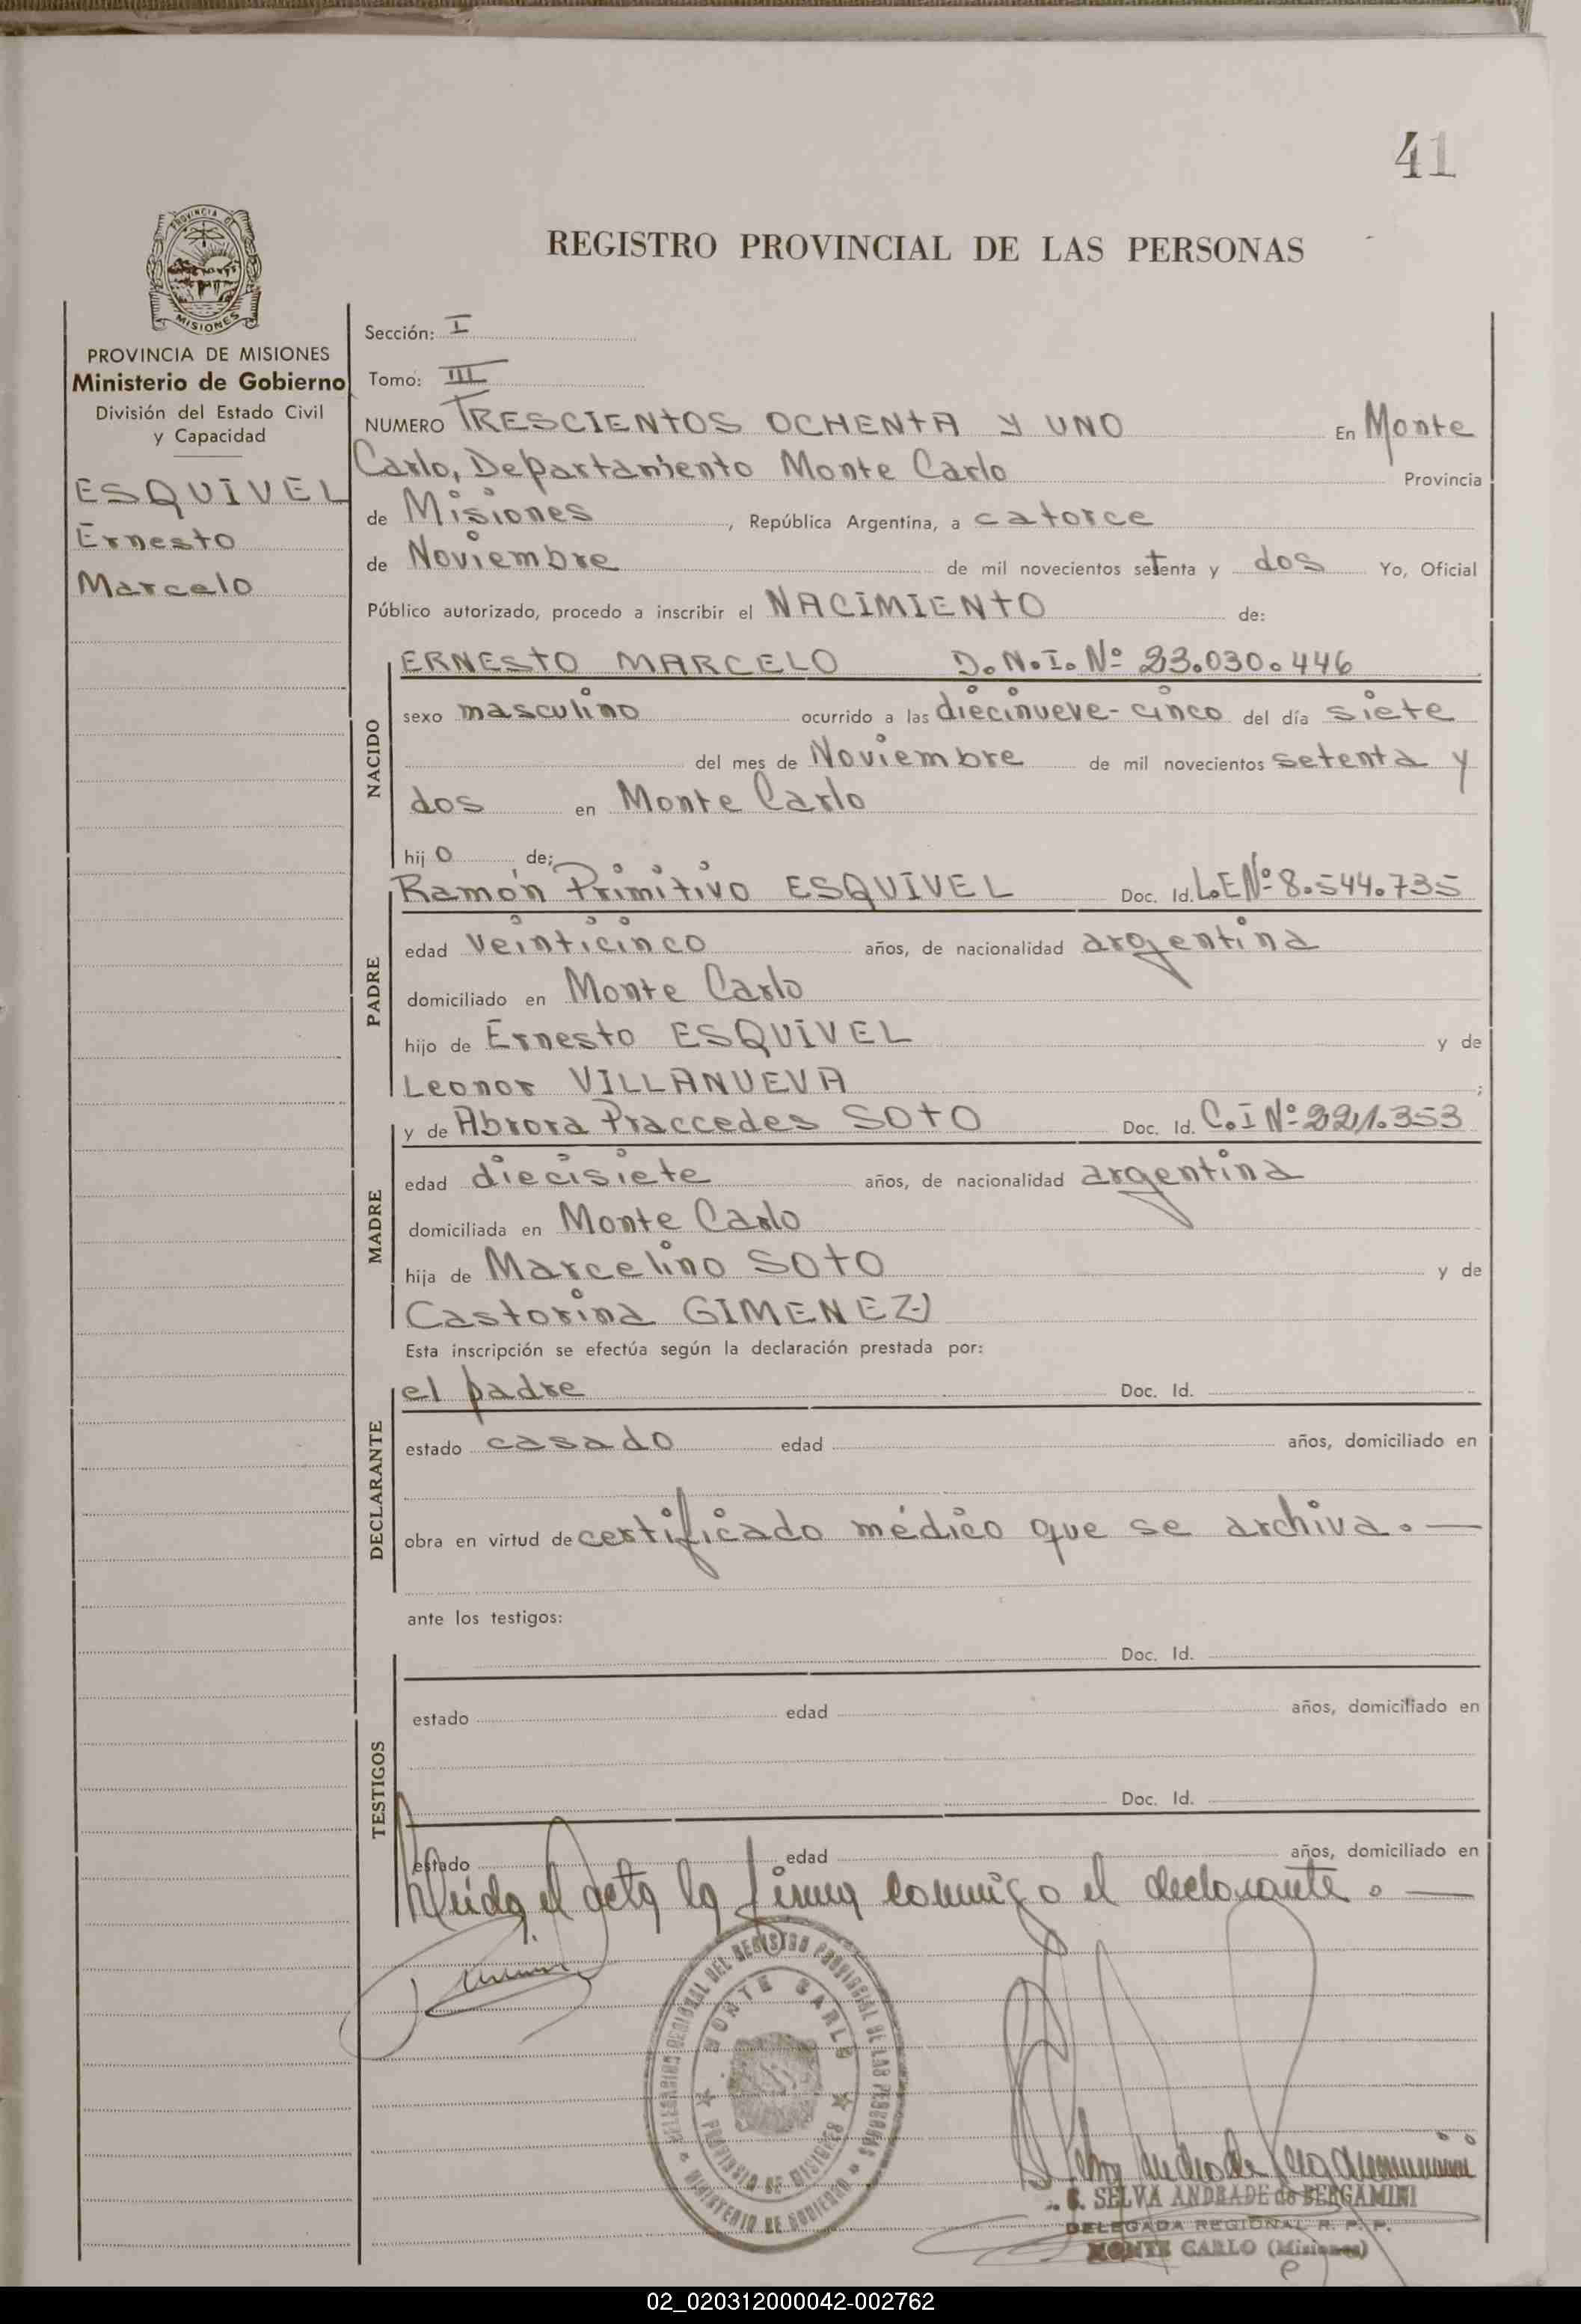 41
PROVINCIA DE MISIONES
REGISTRO PROVINCIAL DE LAS PERSONAS
PROVINCIA DE MISIONES
Ministerio de Gobierno
División del Estado Civil
y Capacidad
ESQUIVEL
Ernesto
Marcelo
Sección: I
Tomo: III
NUMERO TRESCIENTOS OCHENTA Y UNO En Monte
Carlo, Departamento Monte Carlo Provincia
de Misiones, República Argentina, a catorce
de Noviembre de mil novecientos setenta y dos Yo, Oficial
Público autorizado, procedo a inscribir el NACIMIENTO de:
NACIDO
ERNESTO MARCELO D.N.I. Nº 23.030.446
sexo masculino ocurrido a las diecinueve-cinco del día siete
del mes de Noviembre de mil novecientos setenta y
dos en Monte Carlo
hijo de;
PADRE
Ramón Primitivo ESQUIVEL Doc. Id. L.E Nº 8.544.735
edad veinticinco años, de nacionalidad argentina
domiciliado en Monte Carlo
hijo de Ernesto ESQUIVEL y de
Leonor VILLANUEVA ;
MADRE
y de Abrora Praccedes SOTO Doc. Id. C.I Nº 221.353
edad diecisiete años, de nacionalidad argentina
domiciliada en Monte Carlo
hija de Marcelino SOTO y de
Castorina GIMENEZ
Esta inscripción se efectúa según la declaración prestada por:
DECLARANTE
el padre Doc. Id.
estado casado edad años, domiciliado en
obra en virtud de certificado médico que se archiva. —
ante los testigos:
TESTIGOS
Doc. Id.
estado edad años, domiciliado en
Doc. Id.
estado edad años, domiciliado en
Leida el acta la firma conmigo el declarante. —
DELEGACION REGIONAL DEL REGISTRO PROVINCIAL DE LAS PERSONAS
MONTE CARLO
PROVINCIA DE MISIONES
MINISTERIO DE GOBIERNO
SELVA ANDRADE de BERGAMINI
DELEGADA REGIONAL R. P. P.
MONTE CARLO (Misiones)
02_020312000042-002762